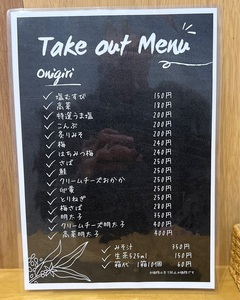 Take out Menu
Onigiri
塩むすび 150円
高菜 180円
特選うま塩 200円
こんぶ 200円
炙りみそ 200円
梅 240円
はちみつ梅 240円
さば 250円
鮭 250円
クリームチーズおかか 250円
卵黄 250円
とりねぎ 250円
梅さば 280円
明太子 350円
クリームチーズ明太子 400円
高菜明太子 400円
みそ汁 350円
生茶525ml 150円
箱代 1箱10個 60円